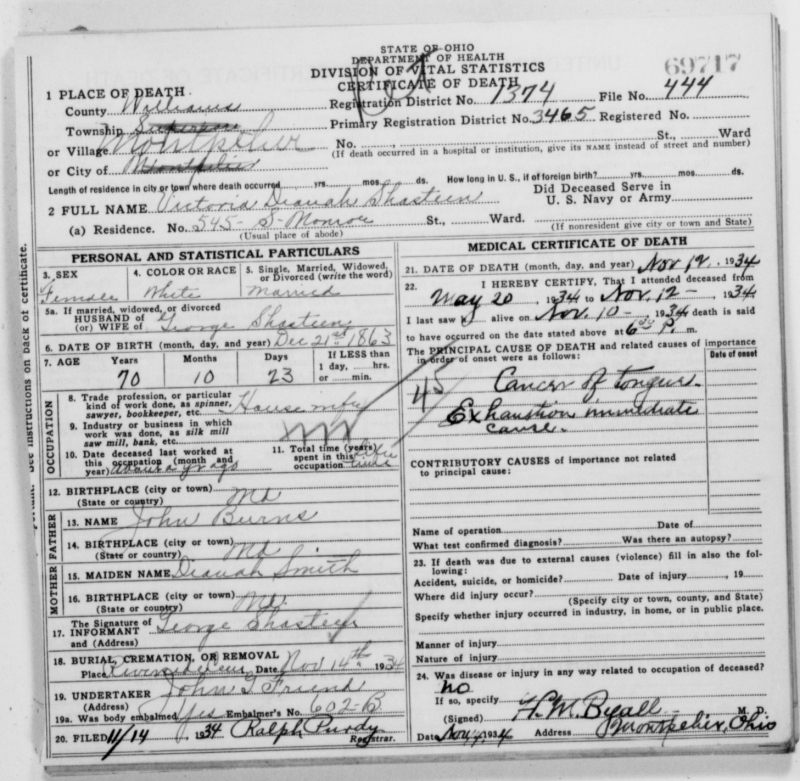 STATE OF OHIO
DEPARTMENT OF HEALTH
DIVISION OF VITAL STATISTICS
CERTIFICATE OF DEATH
69717
1 PLACE OF DEATH
County Williams Registration District No. 1374 File No. 444
Township Superior Primary Registration District No. 3465 Registered No.
or Village Montpelier No. St., Ward
(If death occurred in a hospital or institution, give its NAME instead of street and number)
or City of Montpelier
Length of residence in city or town where death occurred yrs. mos. ds. How long in U. S., if of foreign birth? yrs. mos. ds.
2 FULL NAME Victoria Dianah Shasteen Did Deceased Serve in U. S. Navy or Army
(a) Residence. No. 545- S- Monroe St., Ward.
(Usual place of abode) (If nonresident give city or town and State)
PERSONAL AND STATISTICAL PARTICULARS
3. SEX Female
4. COLOR OR RACE White
5. Single, Married, Widowed, or Divorced (write the word) Married
5a. If married, widowed, or divorced
HUSBAND of
(or) WIFE of George Shasteen
6. DATE OF BIRTH (month, day, and year) Dec 21st 1863
7. AGE Years Months Days If LESS than
70 10 23 1 day, hrs.
or min.
OCCUPATION
8. Trade profession, or particular
kind of work done, as spinner,
sawyer, bookkeeper, etc. Housewife
9. Industry or business in which
work was done, as silk mill
saw mill, bank, etc.
10. Date deceased last worked at
this occupation (month and
year) ago
11. Total time (years)
spent in this
occupation life time
12. BIRTHPLACE (city or town)
(State or country) Md
FATHER
13. NAME John Burns
14. BIRTHPLACE (city or town)
(State or country) Md
MOTHER
15. MAIDEN NAME Dianah Smith
16. BIRTHPLACE (city or town)
(State or country) Md.
17. The Signature of
INFORMANT George Shasteen
and (Address)
18. BURIAL, CREMATION, OR REMOVAL
Place Riverside Cem, Date Nov 14th 1934
19. UNDERTAKER John G Friend
(Address)
19a. Was body embalmed Yes Embalmer's No. 602-B
20. FILED 11/14, 1934 Ralph Purdy
Registrar.
MEDICAL CERTIFICATE OF DEATH
21. DATE OF DEATH (month, day, and year) Nov 12. 1934
22. I HEREBY CERTIFY, That I attended deceased from
May 20, 1934 to Nov. 12-, 1934
I last saw alive on Nov. 10-, 1934 death is said
to have occurred on the date stated above at 6 P. m.
The PRINCIPAL CAUSE OF DEATH and related causes of importance
in order of onset were as follows: Date of onset
45
Cancer of tongue.
Exhaustion immediate
cause.
CONTRIBUTORY CAUSES of importance not related
to principal cause:
Name of operation Date of
What test confirmed diagnosis? Was there an autopsy?
23. If death was due to external causes (violence) fill in also the fol-
lowing:
Accident, suicide, or homicide? Date of injury, 19
Where did injury occur?
(Specify city or town, county, and State)
Specify whether injury occurred in industry, in home, or in public place.
Manner of injury
Nature of injury
24. Was disease or injury in any way related to occupation of deceased?
no
If so, specify
(Signed) H. M. Byall- M. D.
Date Nov, 1934 Address Montpelier, Ohio
See instructions on back of certificate.